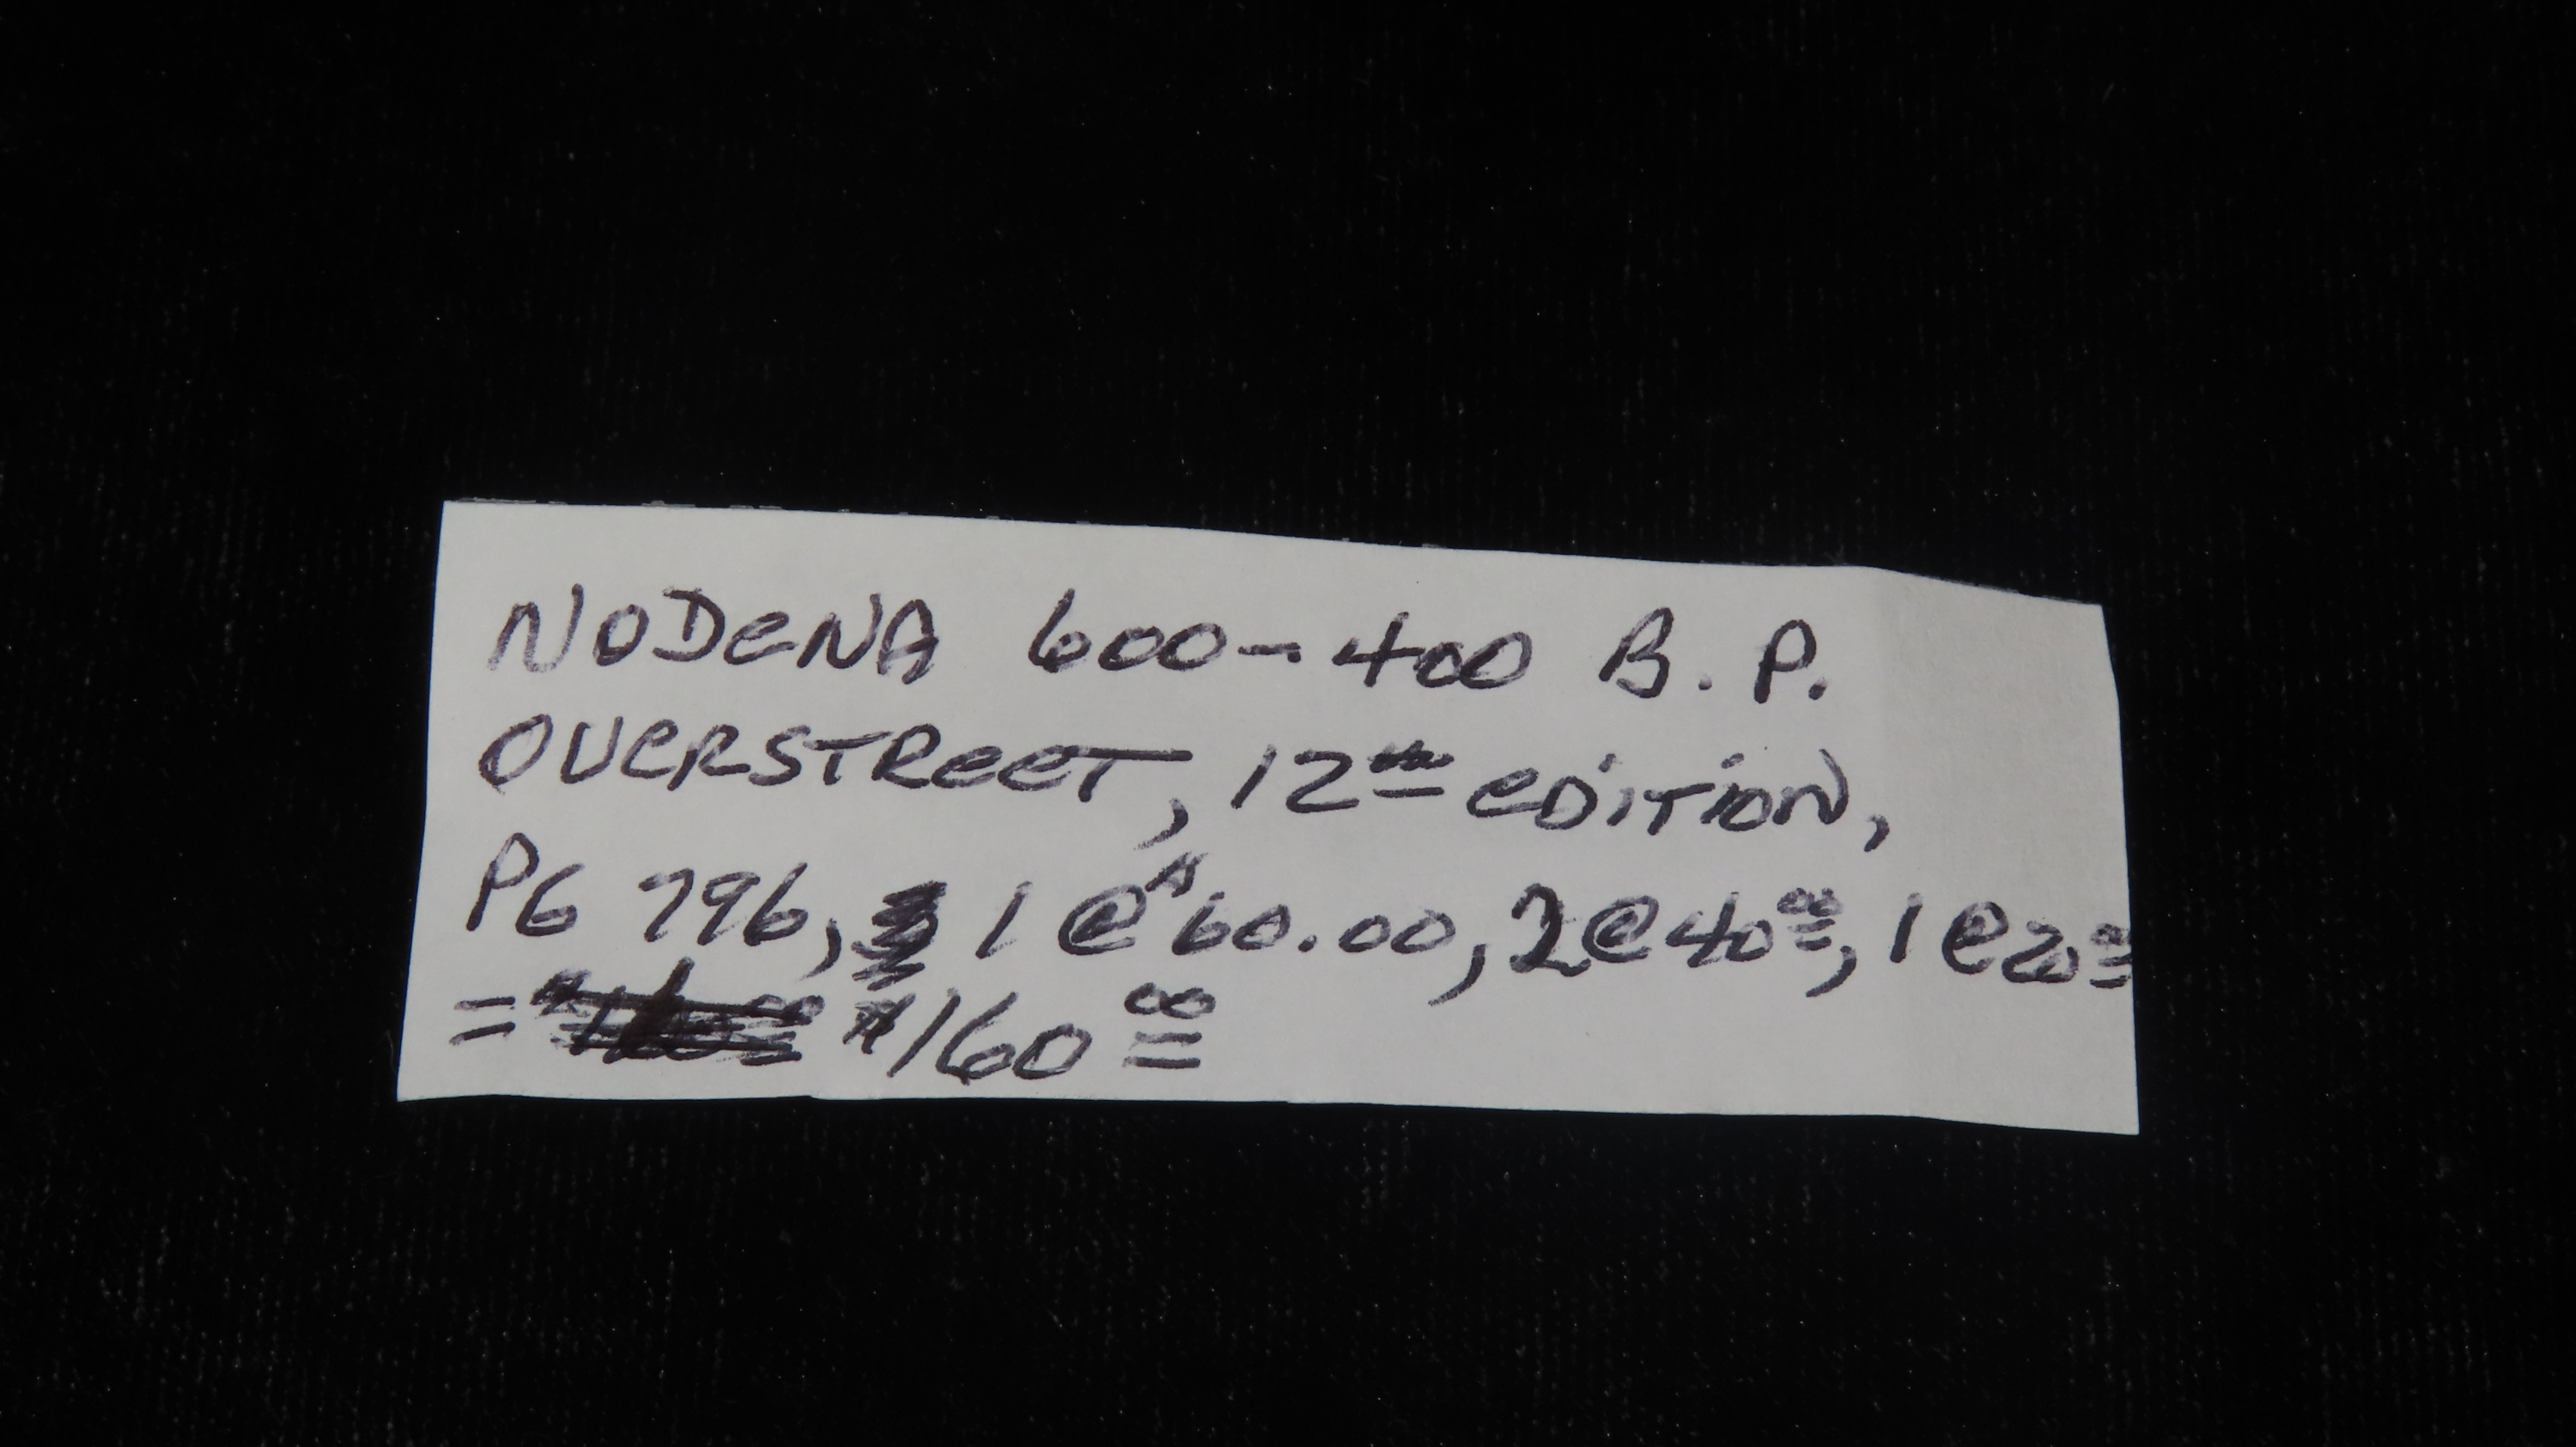 NODENA 600-400 B.P.
OVERSTREET, 12th EDITION,
PG 796, 1 @ $60.00, 2 @ 40 00, 1 @ 20 00
= $160 00